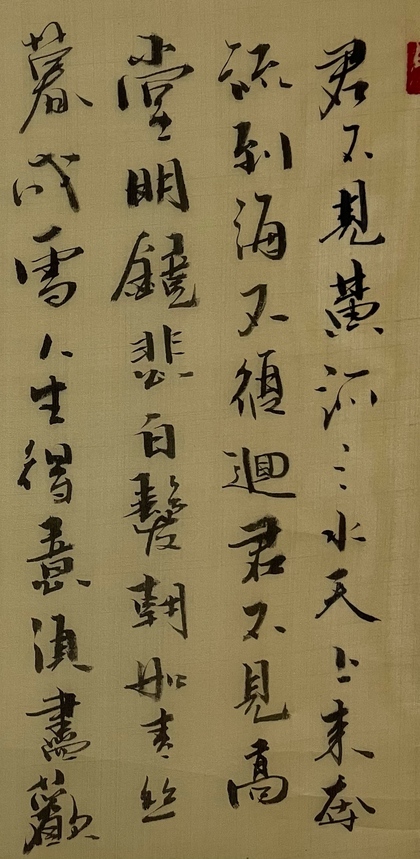 君不見黄河之水天上来奔
流到海不復迴君不見高
堂明鏡悲白髮朝如青丝
暮成雪人生得意須盡歡